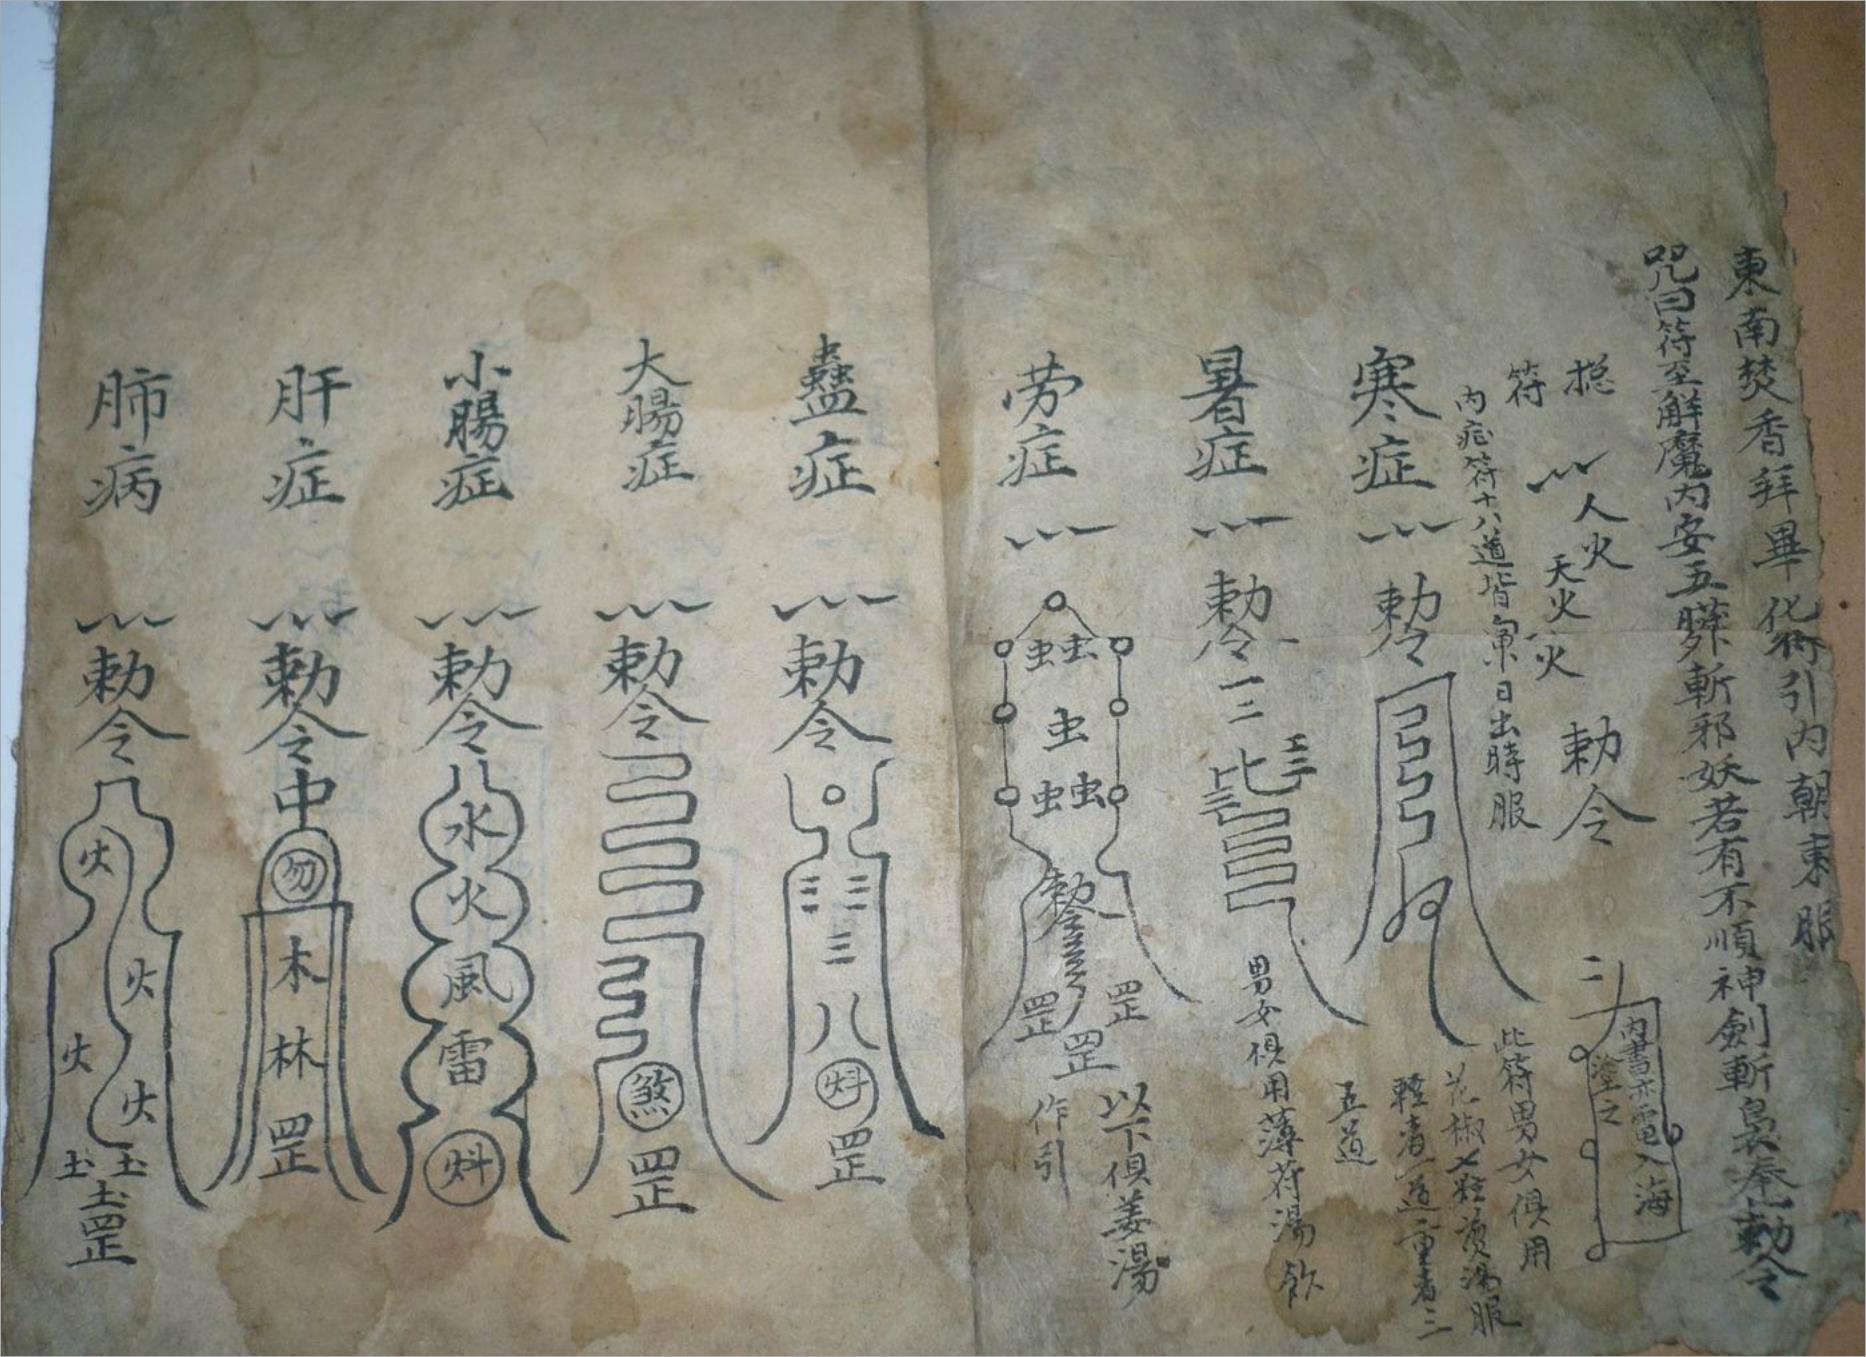 東南焚香拜畢化符引內朝東服
咒曰符至解魔內安五臟斬邪妖若有不順神劍斬裊奉勅令
摠符
人火
天火
火
勅令
內書赤電入海
塗之
內症符十八道皆向東日出時服
寒症
勅令
此符男女俱用
花椒七粒煎湯服
輕者一道重者三
五道
暑症
勅令
男女俱用薄荷湯飲
劳症
虫虫
虫
虫虫
勅令
罡
罡
罡
以下俱姜湯
作引
蠱症
勅令
八
罡
大腸症
勅令
煞
罡
小腸症
勅令
水
火
風
雷
肝症
勅令
中
勿
木
林
罡
肺病
勅令
火
火
火
火
罡